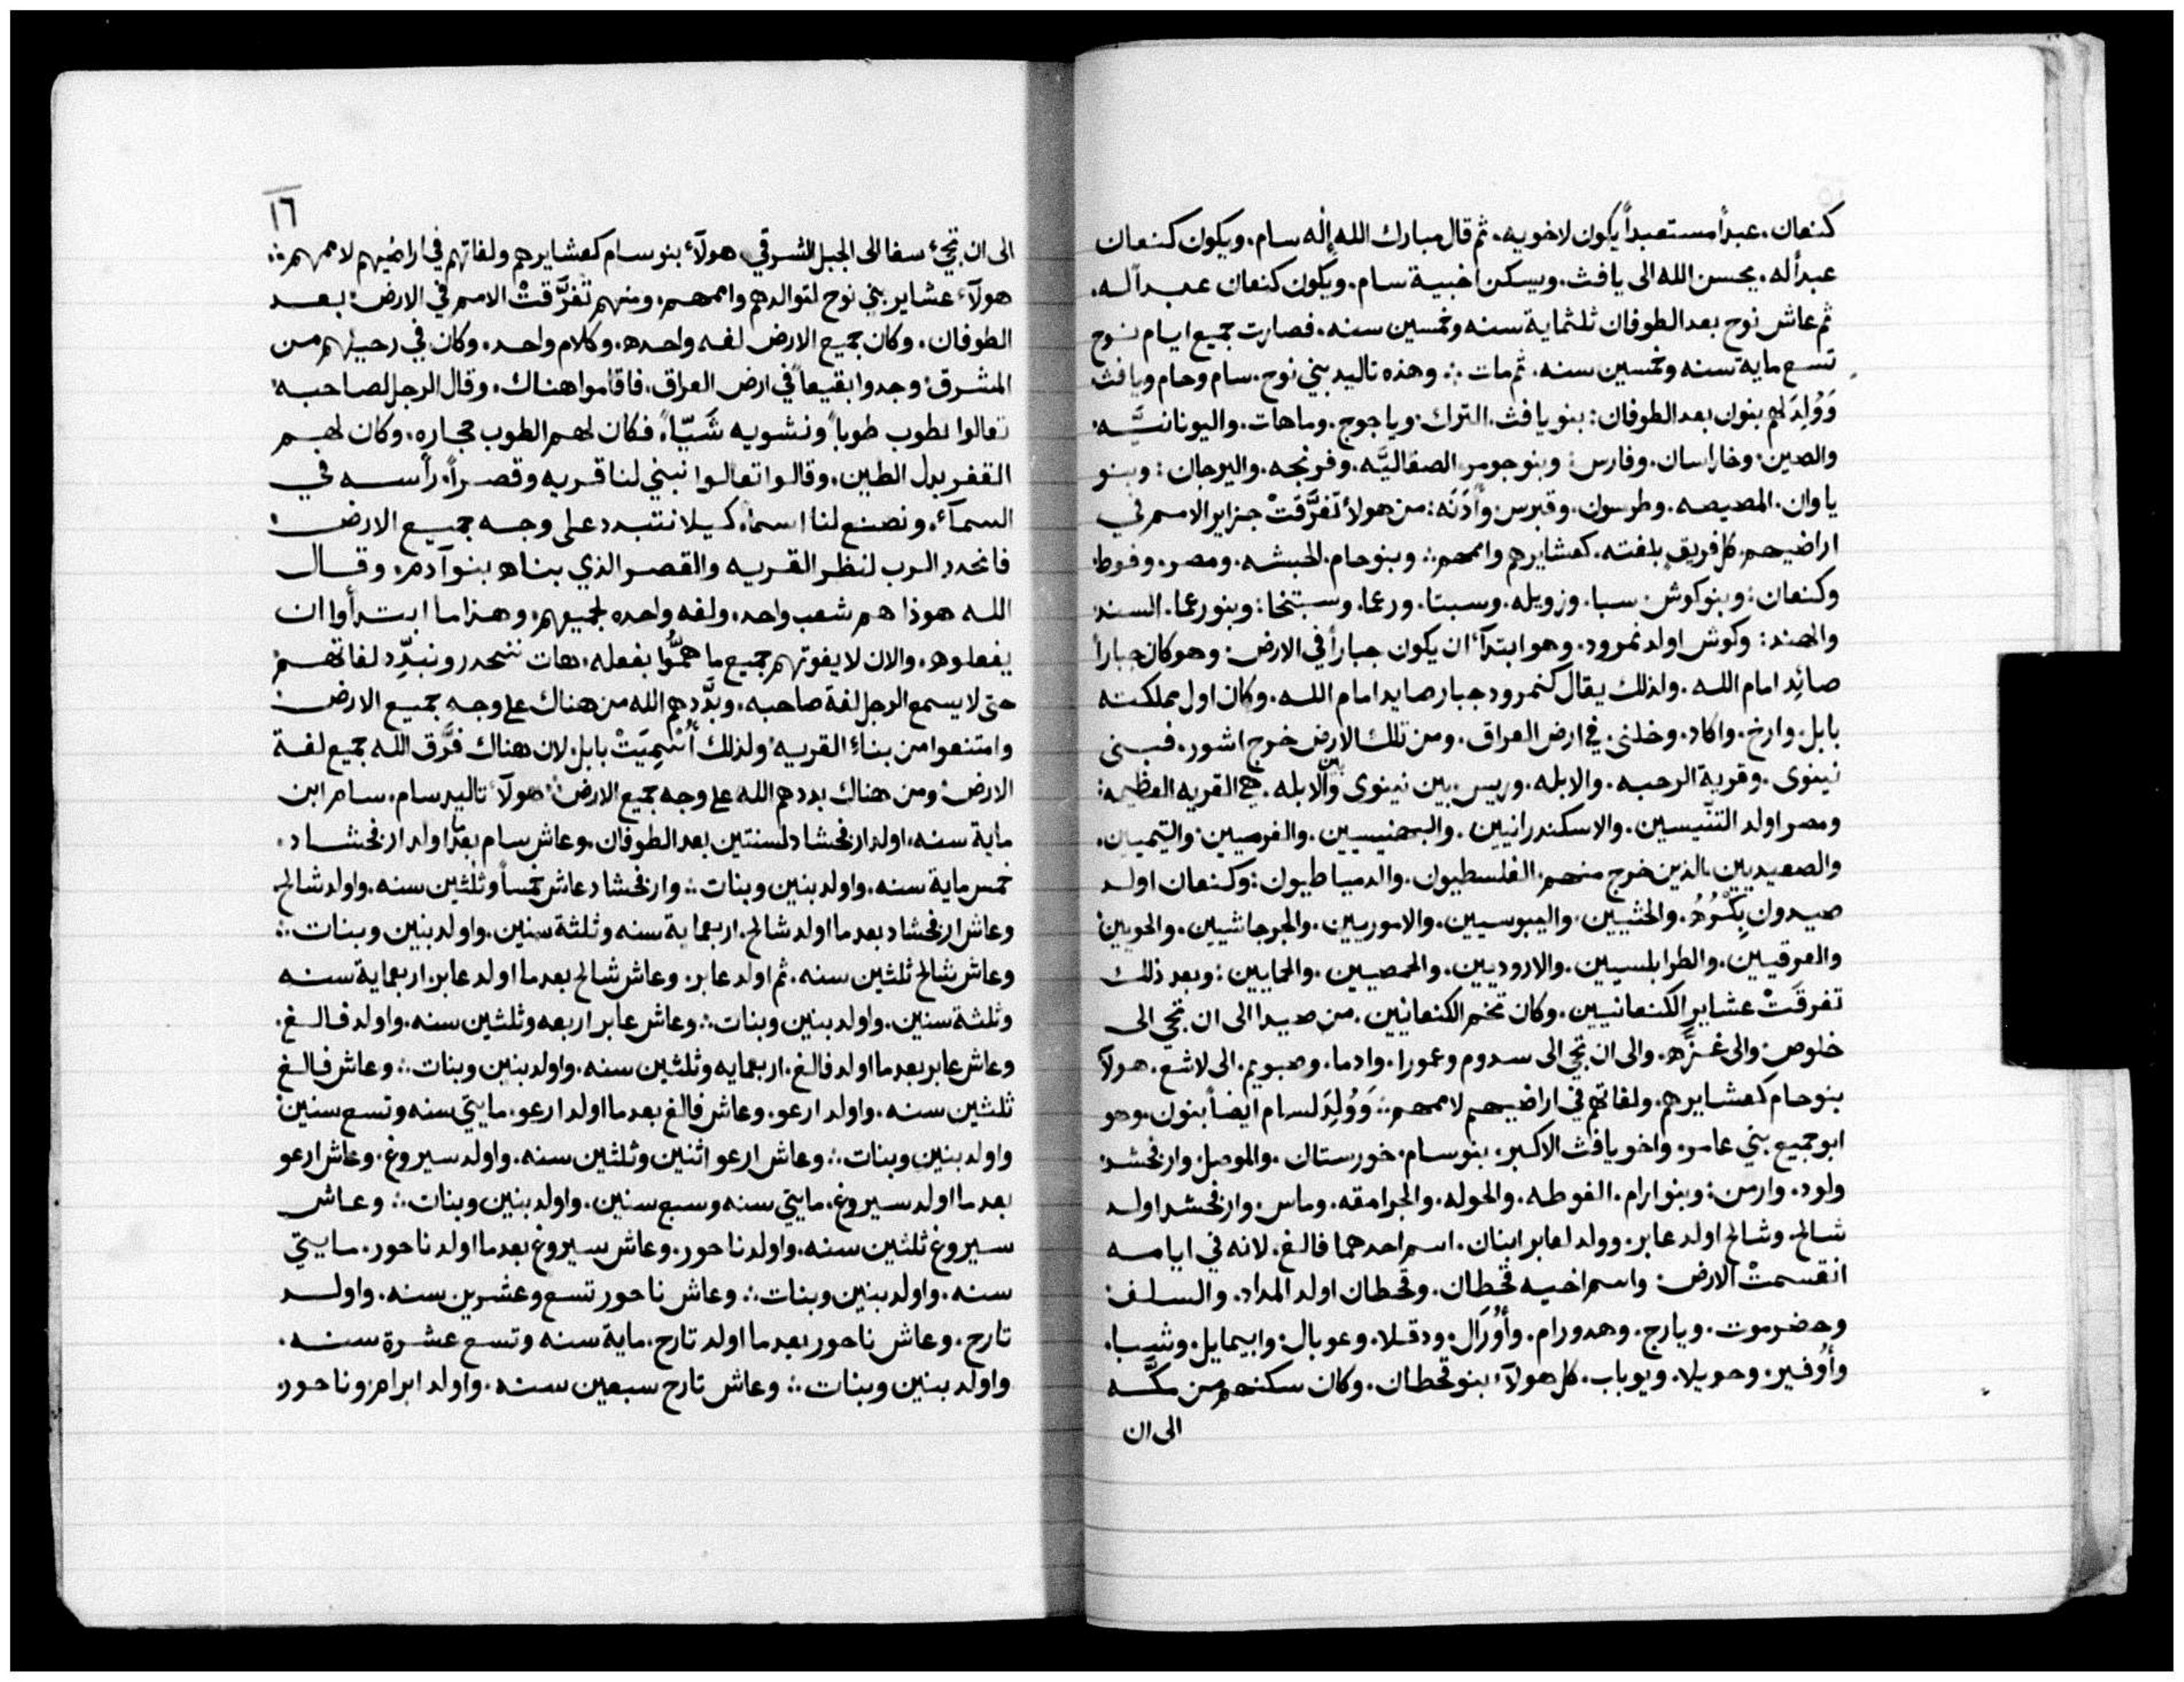 كنعان. عبداً مستعبداً يكون لاخويه. ثم قال مبارك الله إله سام. ويكون كنعان
عبداً له. يحسن الله الى يافث. ويسكن اخبية سام. ويكون كنعان عبداً له.
ثم عاش نوح بعد الطوفان ثلثماية سنه وخمسين سنه. فصارت جميع ايام نوح
تسع ماية سنه وخمسين سنه. ثم مات ∴ وهذه تاليد بني نوح. سام وحام ويافث
وَوُلِدَ لهم بنون بعد الطوفان: بنو يافث. الترك. وياجوج. وماهات. واليونانيَّه.
والصين. وخاراسان. وفارس: وبنو جومر الصقاليَّه. وفرنجه. والبرجان: وبنو
ياوان. المصيصه. وطرسون. وقبرس وأَدَنَه: من هولاء تفرَّقتْ جزاير الامم في
اراضيهم. كل فريق بلغته. كعشايرهم واممهم ∴ وبنو حام. الحبشه. ومصر. وفوط.
وكنعان: وبنو كوش. سبا. وزويله. وسبتا. ورعما. وسبتخا: وبنو رعما. السند
والهند: وكوش اولد نمرود. وهو ابتدآء ان يكون جباراً في الارض: وهو كان جباراً
صائِد امام الله. ولذلك يقال كنمرود جبار صايد امام الله. وكان اول مملكته
بابل. وارخ. واكاد. وخلنى. في ارض العراق. ومن تلك الارض خرج اشور. فبنى
نينوى. وقرية الرحبه. والابله. وريس. بين نينوى وبين الابله. هي القريه العظيمه:
ومصر اولد التنّيسين. والاسكندرانيين. والبهنيسيين. والفرميين. والتيميين.
والصعيديين. الذين خرج منهم. الفلسطيون. والدمياطيون: وكنعان اولد
صيدون بِكْرُهُ. والحثيين. واليبوسيين. والاموريين. والجرجاشيين. والحويين.
والعرقيين. والطرابلسيين. والارواديين. والحمصيين. والحمايين: وبعد ذلك
تفرقَتْ عشاير الكنعانيين. وكان تخم الكنعانيين. من صيدا الى ان تجي الى
خلوص. والى غزَّه. والى ان تجي الى سدوم وعمورا. وادما. وصبويم. الى لاشع. هولآء
بنو حام كعشايرهم. ولغاتهم في اراضيهم لاممهم ∴ وَوُلِدَ لسام ايضاً بنون. وهو
ابو جميع بني عامر. واخو يافث الاكبر. بنو سام. خورستان. والموصل. وارفخشد.
ولود. وارمن: وبنو ارام. الغوطه. والحوله. والجرامقه. وماس. وارفخشد اولد
شالح. وشالح اولد عابر. وولد لعابر ابنان. اسم احدهما فالغ. لانه في ايامه
انقسمتْ الارض: واسم اخيه قحطان. وقحطان اولد المداد. والسلف.
وحضرموت. ويارح. وهدورام. وأُوزَال. ودقلا. وعوبال. وابيمايل. وشبا.
وأُوفير. وحويلا. ويوباب. كل هولآء بنو قحطان. وكان سكنهم من مكَّه
الى ان
١٦
الى ان تجيء سفا الى الجبل الشرقي. هولآء بنو سام كعشايرهم ولغاتهم في اراضيهم لاممهم ∴
هولآء عشاير بني نوح لتوالدهم واممهم. ومنهم تفرَّقتْ الامم في الارض. بعد
الطوفان. وكان جميع الارض لغه واحده. وكلام واحد. وكان في رحيلهم من
المشرق. وجدوا بقيعاً في ارض العراق. فاقاموا هناك. وقال الرجل لصاحبه
تعالوا نطوب طوباً ونشويه شَيّاً. فكان لهم الطوب حجاره. وكان لهم
القفر بدل الطين. وقالوا تعالوا نبني لنا قريه وقصراً. رأسه في
السمآء. ونصنع لنا اسماً. كيلا نتبدد على وجه جميع الارض:
فانحدر الرب لنظر القريه والقصر الذي بناه بنو آدم. وقال
الله هوذا هم شعب واحد. ولغه واحده لجميعهم. وهذا ما ابتدأوا ان
يفعلوه. والان لا يفوتهم جميع ما همُّوا بفعله. هات ننحدر ونبدِّد لغاتهم
حتى لا يسمع الرجل لغة صاحبه. وبدَّدهم الله من هناك على وجه جميع الارض:
وامتنعوا من بناء القريه. ولذلك أُسْمِيَتْ بابل. لان هناك فرَّق الله جميع لغة
الارض. ومن هناك بددهم الله على وجه جميع الارض: هولآء تاليد سام. سام ابن
ماية سنه. اولد ارفخشاد لسنتين بعد الطوفان. وعاش سام بعد ما اولد ارفخشاد.
خمس ماية سنه. واولد بنين وبنات ∴ وارفخشاد عاش خمساً وثلثين سنه. واولد شالح.
وعاش ارفخشاد بعد ما اولد شالح. اربعماية سنه وثلثة سنين. واولد بنين وبنات ∴
وعاش شالح ثلثين سنه. ثم اولد عابر. وعاش شالح بعد ما اولد عابر. اربعماية سنه
وثلثة سنين. واولد بنين وبنات ∴ وعاش عابر اربعه وثلثين سنه. واولد فالغ.
وعاش عابر بعد ما اولد فالغ. اربعمايه وثلثين سنه. واولد بنين وبنات ∴ وعاش فالغ
ثلثين سنه. واولد ارعو. وعاش فالغ بعد ما اولد ارعو. مايتي سنه وتسع سنين.
واولد بنين وبنات ∴ وعاش ارعو اثنين وثلثين سنه. واولد سيروغ. وعاش ارعو
بعد ما اولد سيروغ. مايتي سنه وسبع سنين. واولد بنين وبنات ∴ وعاش
سيروغ ثلثين سنه. واولد ناحور. وعاش سيروغ بعد ما اولد ناحور. مايتي
سنه. واولد بنين وبنات ∴ وعاش ناحور تسع وعشرين سنه. واولد
تارح. وعاش ناحور بعد ما اولد تارح. ماية سنه وتسع عشرة سنه.
واولد بنين وبنات ∴ وعاش تارح سبعين سنه. واولد ابرام وناحور